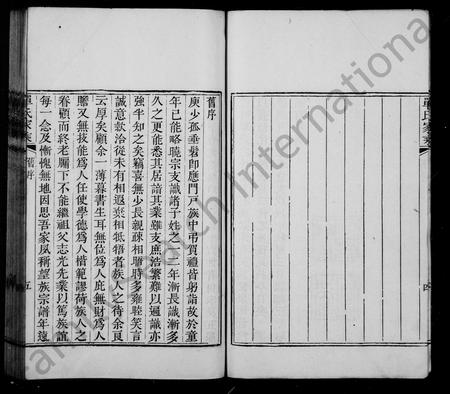 舊序
庚少孤垂髫卽應門戸族中弔賀禮皆躬詣故於童
年已能略曉宗支識諸子姓之一二年漸長識漸多
久之更能悉其居諳其業雖支庶浩繁難以遍識亦
強半知之矣竊喜無少長親疎相晤時多雍睦笑言
誠意款洽從未有相遐棄相牴牾者族人之待余良
云厚矣顧余一薄暮書生耳無位爲人庇無財爲人
贍又無技能爲人任使學德爲人楷範謬荷族人之
眷顧而終老牖下不能繼祖父志光先業以篤族誼
每一念及慚愧無地因思吾家夙稱望族宗譜年遠
氏家
舊序
五
氏家
四
International